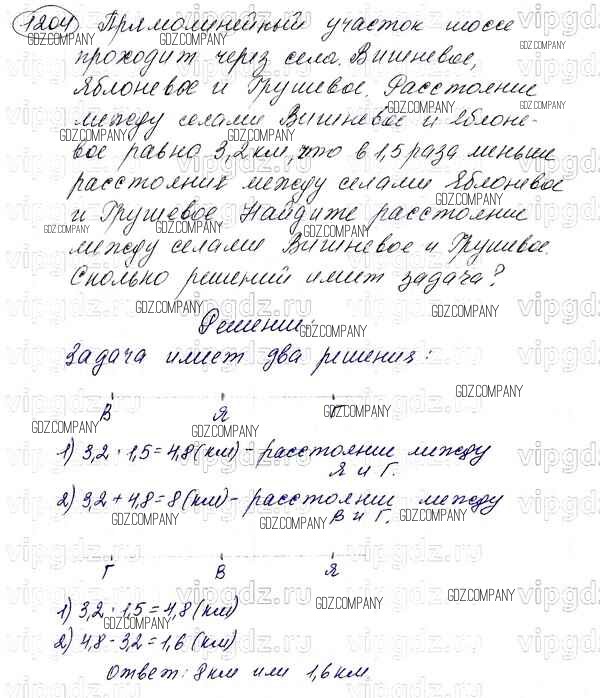 1204 Прямолинейный участок шоссе
проходит через села Вишневое,
Яблоневое и Грушевое. Расстояние
между селами Вишневое и Яблоне-
вое равно 3,2 км, что в 1,5 раза меньше
расстояния между селами Яблоневое
и Грушевое. Найдите расстояние
между селами Вишневое и Грушевое.
Сколько решений имеет задача?
Решение:
Задача имеет два решения:
В Я Г
1) 3,2 · 1,5 = 4,8 (км) - расстояние между
Я и Г.
2) 3,2 + 4,8 = 8 (км) - расстояние между
В и Г.
Г В Я
1) 3,2 · 1,5 = 4,8 (км)
2) 4,8 - 3,2 = 1,6 (км)
Ответ: 8 км или 1,6 км
GDZ.COMPANY
vipgdz.ru